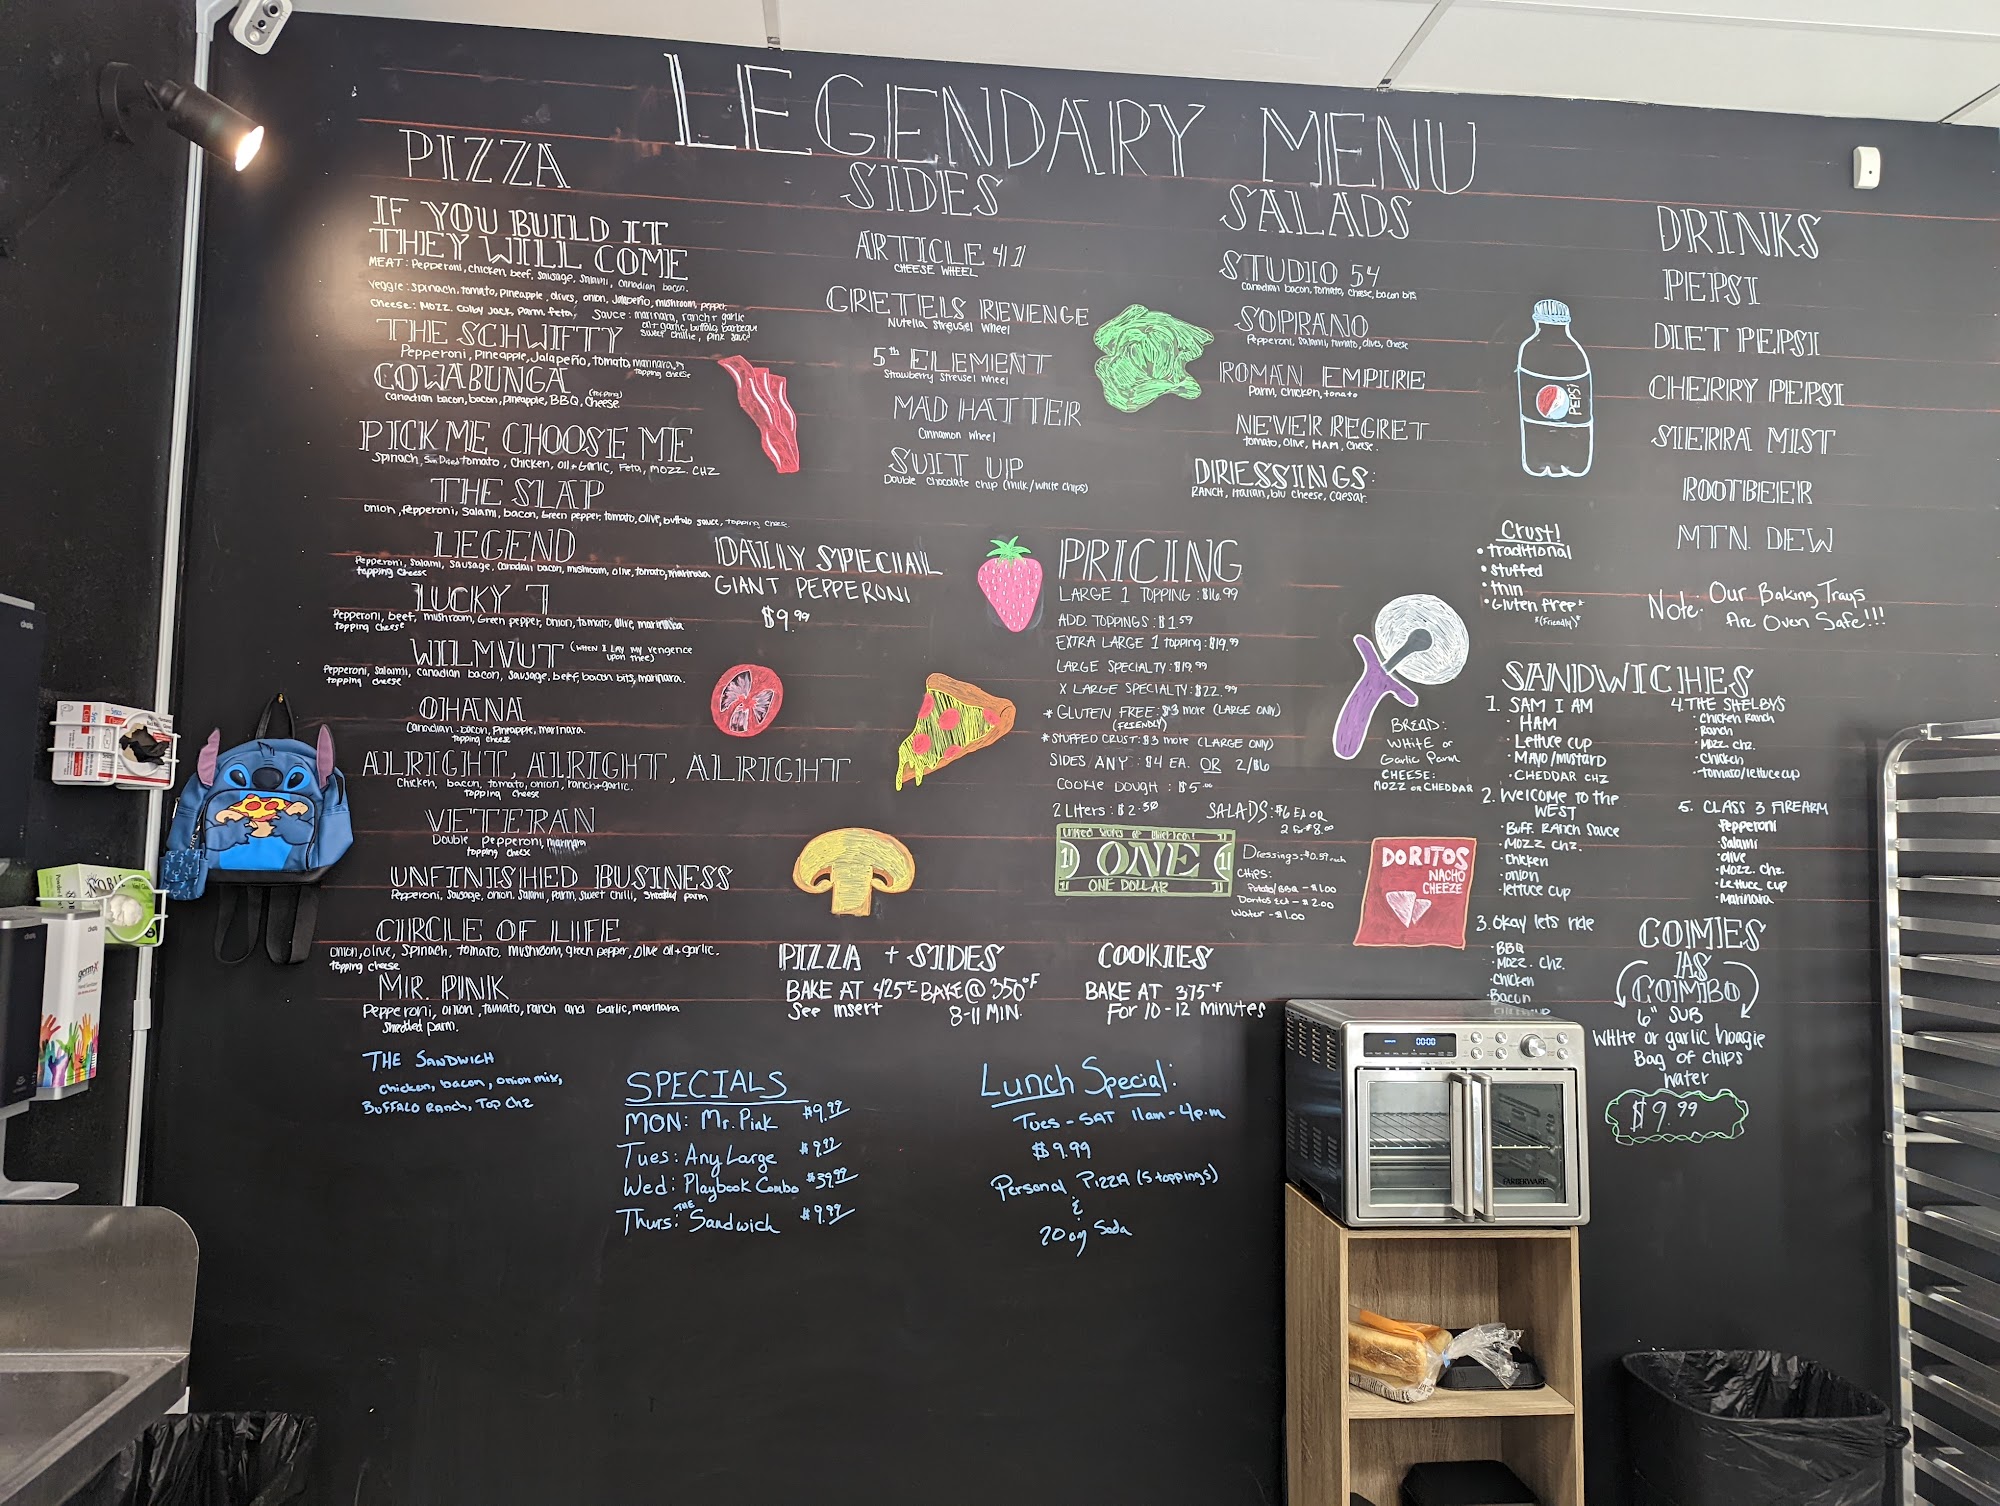 LEGENDARY MENU
PIZZA
IF YOU BUILD IT
THEY WILL COME
MEAT: Pepperoni, chicken, beef, sausage, salami, canadian bacon.
Veggie: spinach, tomato, pineapple, olives, onion, Jalapeño, mushroom, pepper.
Cheese: Mozz. Colby Jack, Parm. feta,
Sauce: marinara, ranch + garlic
oil + garlic, buffalo, barbeque
sweet chillie, pink sauce
THE SCHWIFTY
Pepperoni, Pineapple, Jalapeño, tomato, marinara,
topping cheese
COWABUNGA
Canadian bacon, bacon, pineapple, BBQ, (topping) Cheese.
PICK ME CHOOSE ME
Spinach, Sun Dried tomato, Chicken, oil + Garlic, Feta, MOZZ. CHZ
THE SLAP
onion, Pepperoni, Salami, bacon, Green pepper, tomato, Olive, buffalo sauce, topping cheese.
LEGEND
Pepperoni, Salami, Sausage, Canadian bacon, mushroom, olive, tomato, marinara
topping cheese
LUCKY 7
Pepperoni, beef, mushroom, Green pepper, onion, tomato, olive, marinara
topping cheese
WILMVUT (WHEN I LAY MY VENGENCE
upon thee)
Pepperoni, Salami, canadian bacon, sausage, beef, bacon bits, marinara.
topping cheese
OHANA
Canadian bacon, Pineapple, marinara.
topping cheese
ALRIGHT, ALRIGHT, ALRIGHT
Chicken, bacon, tomato, onion, ranch + garlic.
topping cheese
VETERAN
Double pepperoni, marinara
topping cheese
UNFINISHED BUSINESS
Pepperoni, Sausage, onion, Salami, Parm, Sweet chilli, shredded parm
CIRCLE OF LIFE
onion, olive, spinach, tomato, mushroom, green pepper, olive oil + garlic.
topping cheese
MR. PINK
Pepperoni, onion, tomato, ranch and Garlic, marinara
Shredded parm.
THE SANDWICH
Chicken, bacon, onion mix,
BUFFALO Ranch, TOP CHZ
SIDES
ARTICLE 41
CHEESE WHEEL
GRETELS REVENGE
Nutella Streusel Wheel
5th ELEMENT
Strawberry Streusel Wheel
MAD HATTER
Cinnamon Wheel
SUIT UP
Double Chocolate chip (milk/white chips)
DAILY SPECIAL
GIANT PEPPERONI
$9.99
SALADS
STUDIO 54
Canadian bacon, tomato, cheese, bacon bits
SOPRANO
Pepperoni, Salami, tomato, olives, cheese
ROMAN EMPIRE
Parm, Chicken, tomato
NEVER REGRET
tomato, olive, HAM, cheese.
DRESSINGS:
RANCH, Italian, blu cheese, caesar.
PRICING
LARGE 1 TOPPING: $16.99
ADD. TOPPINGS: $1.59
EXTRA LARGE 1 topping: $19.99
LARGE SPECIALTY: $19.99
X LARGE SPECIALTY: $22.99
* GLUTEN FREE: $3 more (LARGE ONLY)
(FRIENDLY)
* STUFFED CRUST: $3 more (LARGE ONLY)
SIDES ANY: $4 EA. OR 2/$6
COOKIE DOUGH: $5.00
2 Liters: $2.50
SALADS: $6 EA OR
2 For $8.00
ONE
ONE DOLLAR
Dressings: $0.59 each
CHIPS:
Potato/BBQ - $1.00
Doritos Ect - $2.00
Water - $1.00
DORITOS
NACHO
CHEEZE
DRINKS
PEPSI
DIET PEPSI
CHERRY PEPSI
SIERRA MIST
ROOTBEER
MTN. DEW
PEPSI
Crust!
• traditional
• stuffed
• thin
• Gluten free*
*(Friendly)*
Note: Our Baking Trays
Are Oven Safe!!!
BREAD:
WHITE or
Garlic Parm
CHEESE:
MOZZ or CHEDDAR
SANDWICHES
1. SAM I AM
• HAM
• Lettuce cup
• MAYO/mustard
• CHEDDAR CHZ
2. Welcome to the
WEST
• BUFF. RANCH Sauce
• MOZZ CHZ.
• Chicken
• onion
• lettuce cup
3. Okay lets ride
• BBQ
• Mozz. CHZ.
• Chicken
• Bacon
4. THE SHELBYS
• Chicken Ranch
• Ranch
• Mozz chz.
• Chicken
• tomato/lettuce cup
5. CLASS 3 FIREARM
• Pepperoni
• Salami
• olive
• Mozz. CHZ
• Lettuce cup
• Marinara
COMES
AS
COMBO
6" SUB
White or garlic hoagie
Bag of chips
Water
$9.99
PIZZA + SIDES
BAKE AT 425°F
See insert
BAKE @ 350°F
8-11 MIN.
COOKIES
BAKE AT 375°F
For 10-12 minutes
SPECIALS
MON: Mr. Pink $9.99
Tues: Any Large $9.99
Wed: Playbook Combo $39.99
Thurs: THE Sandwich $9.99
Lunch Special:
Tues - SAT 11am - 4p.m
$9.99
Personal Pizza (5 toppings)
&
20 oz Soda
00:00
FARBERWARE